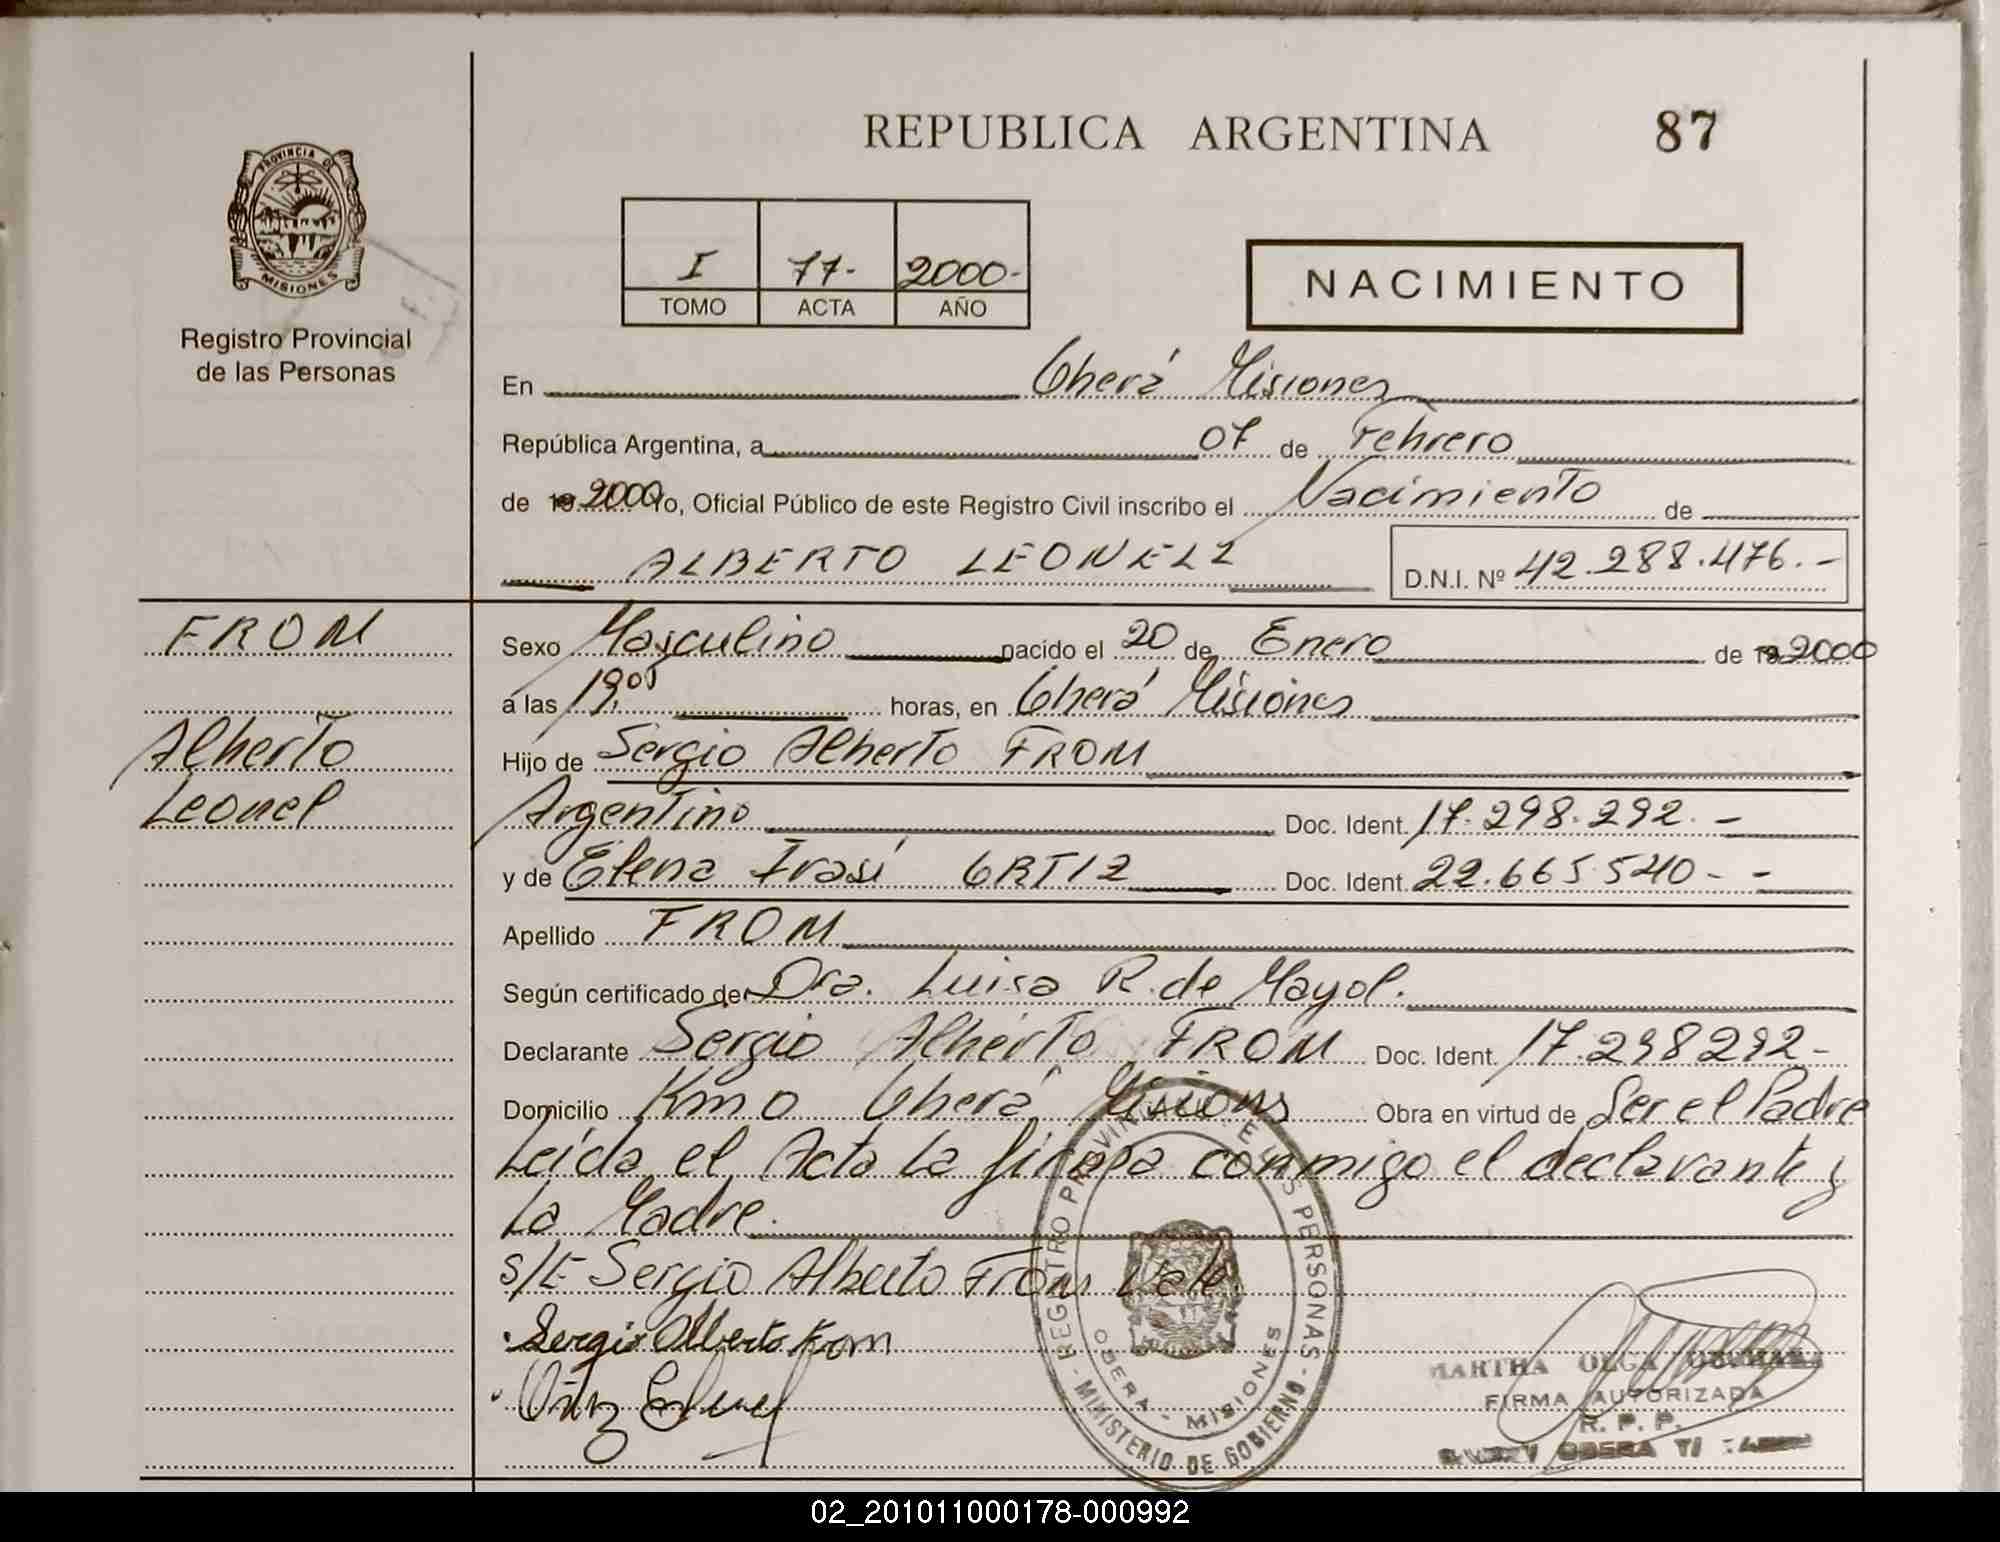 REPUBLICA ARGENTINA
87
PROVINCIA DE
MISIONES
Registro Provincial
de las Personas
I 77- 2000-
TOMO ACTA AÑO
NACIMIENTO
En Oberá Misiones
República Argentina, a 07 de Febrero
de 19 2000 Yo, Oficial Público de este Registro Civil inscribo el Nacimiento de
ALBERTO LEONEL
D.N.I. Nº 42.288.476.-
FROM
Sexo Masculino nacido el 20 de Enero de 19 2000
a las 19,00 horas, en Oberá Misiones
Alberto
Hijo de Sergio Alberto FROM
Leonel
Argentino Doc. Ident. 17.298.292.-
y de Elena Irasí ORTIZ Doc. Ident. 22.665.540--
Apellido FROM
Según certificado de Dra. Luisa R. de Mayol.
Declarante Sergio Alberto FROM Doc. Ident. 17.298292-
Domicilio Km 0 Oberá Misiones Obra en virtud de Ser el Padre
Leída el Acta la firma conmigo el declarante y
La Madre.
s/E Sergio Alberto From Vale.
Sergio Alberto From
REGISTRO PROVINCIAL DE LAS PERSONAS
OBERA - MISIONES
- MINISTERIO DE GOBIERNO -
MARTHA OLGA
FIRMA AUTORIZADA
R. P. P.
OBERA
02_201011000178-000992